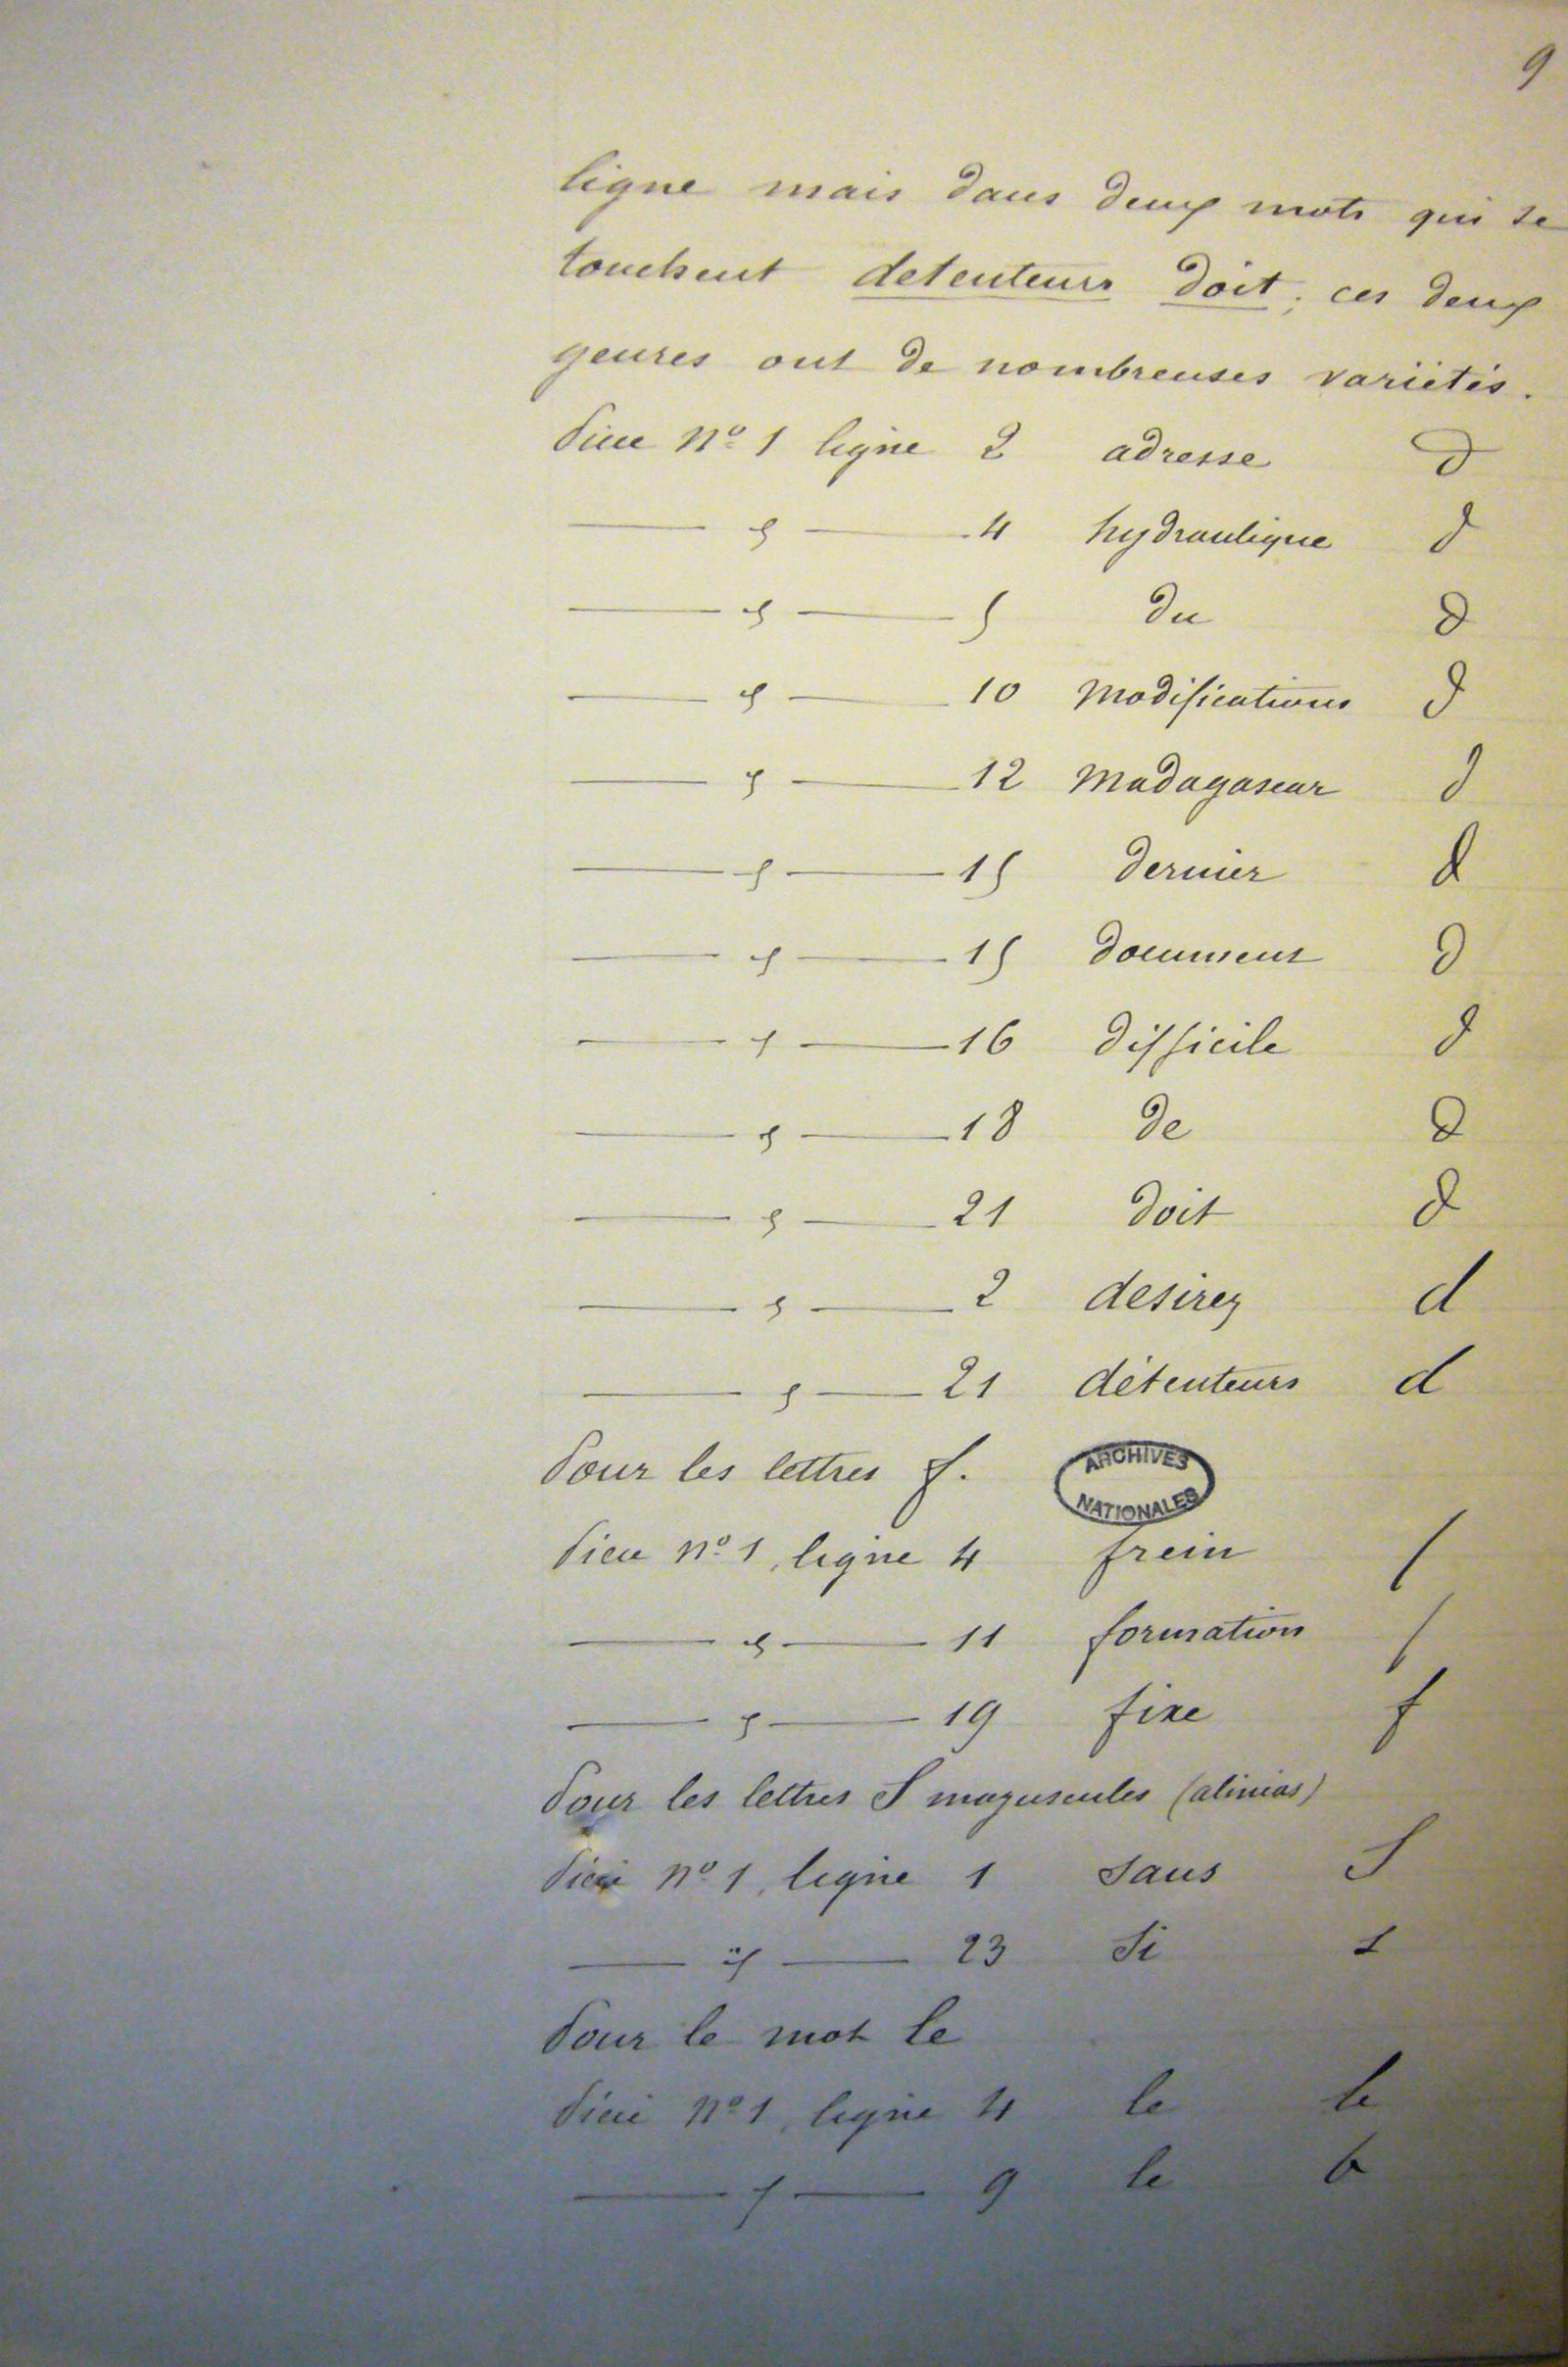 9
ligne mais dans deux mots qui se
touchent detenteurs doit; ces deux
genres ont de nombreuses variétés.
Pièce Nº 1 ligne 2 adresse d
— " — 4 hydraulique d
— " — 5 du d
— " — 10 modifications d
— " — 12 Madagascar d
— " — 15 dernier d
— " — 15 document d
— " — 16 difficile d
— " — 18 de d
— " — 21 doit d
— " — 2 desirez d
— " — 21 détenteurs d
Pour les lettres f.
ARCHIVES
NATIONALES
Pièce nº 1, ligne 4 frein f
— " — 11 formation f
— " — 19 fixe f
Pour les lettres S majuscules (alinéas)
Pièce nº 1, ligne 1 Sans S
— " — 23 Si S
Pour le mot le
Pièce Nº 1, ligne 4 le le
— " — 9 le le